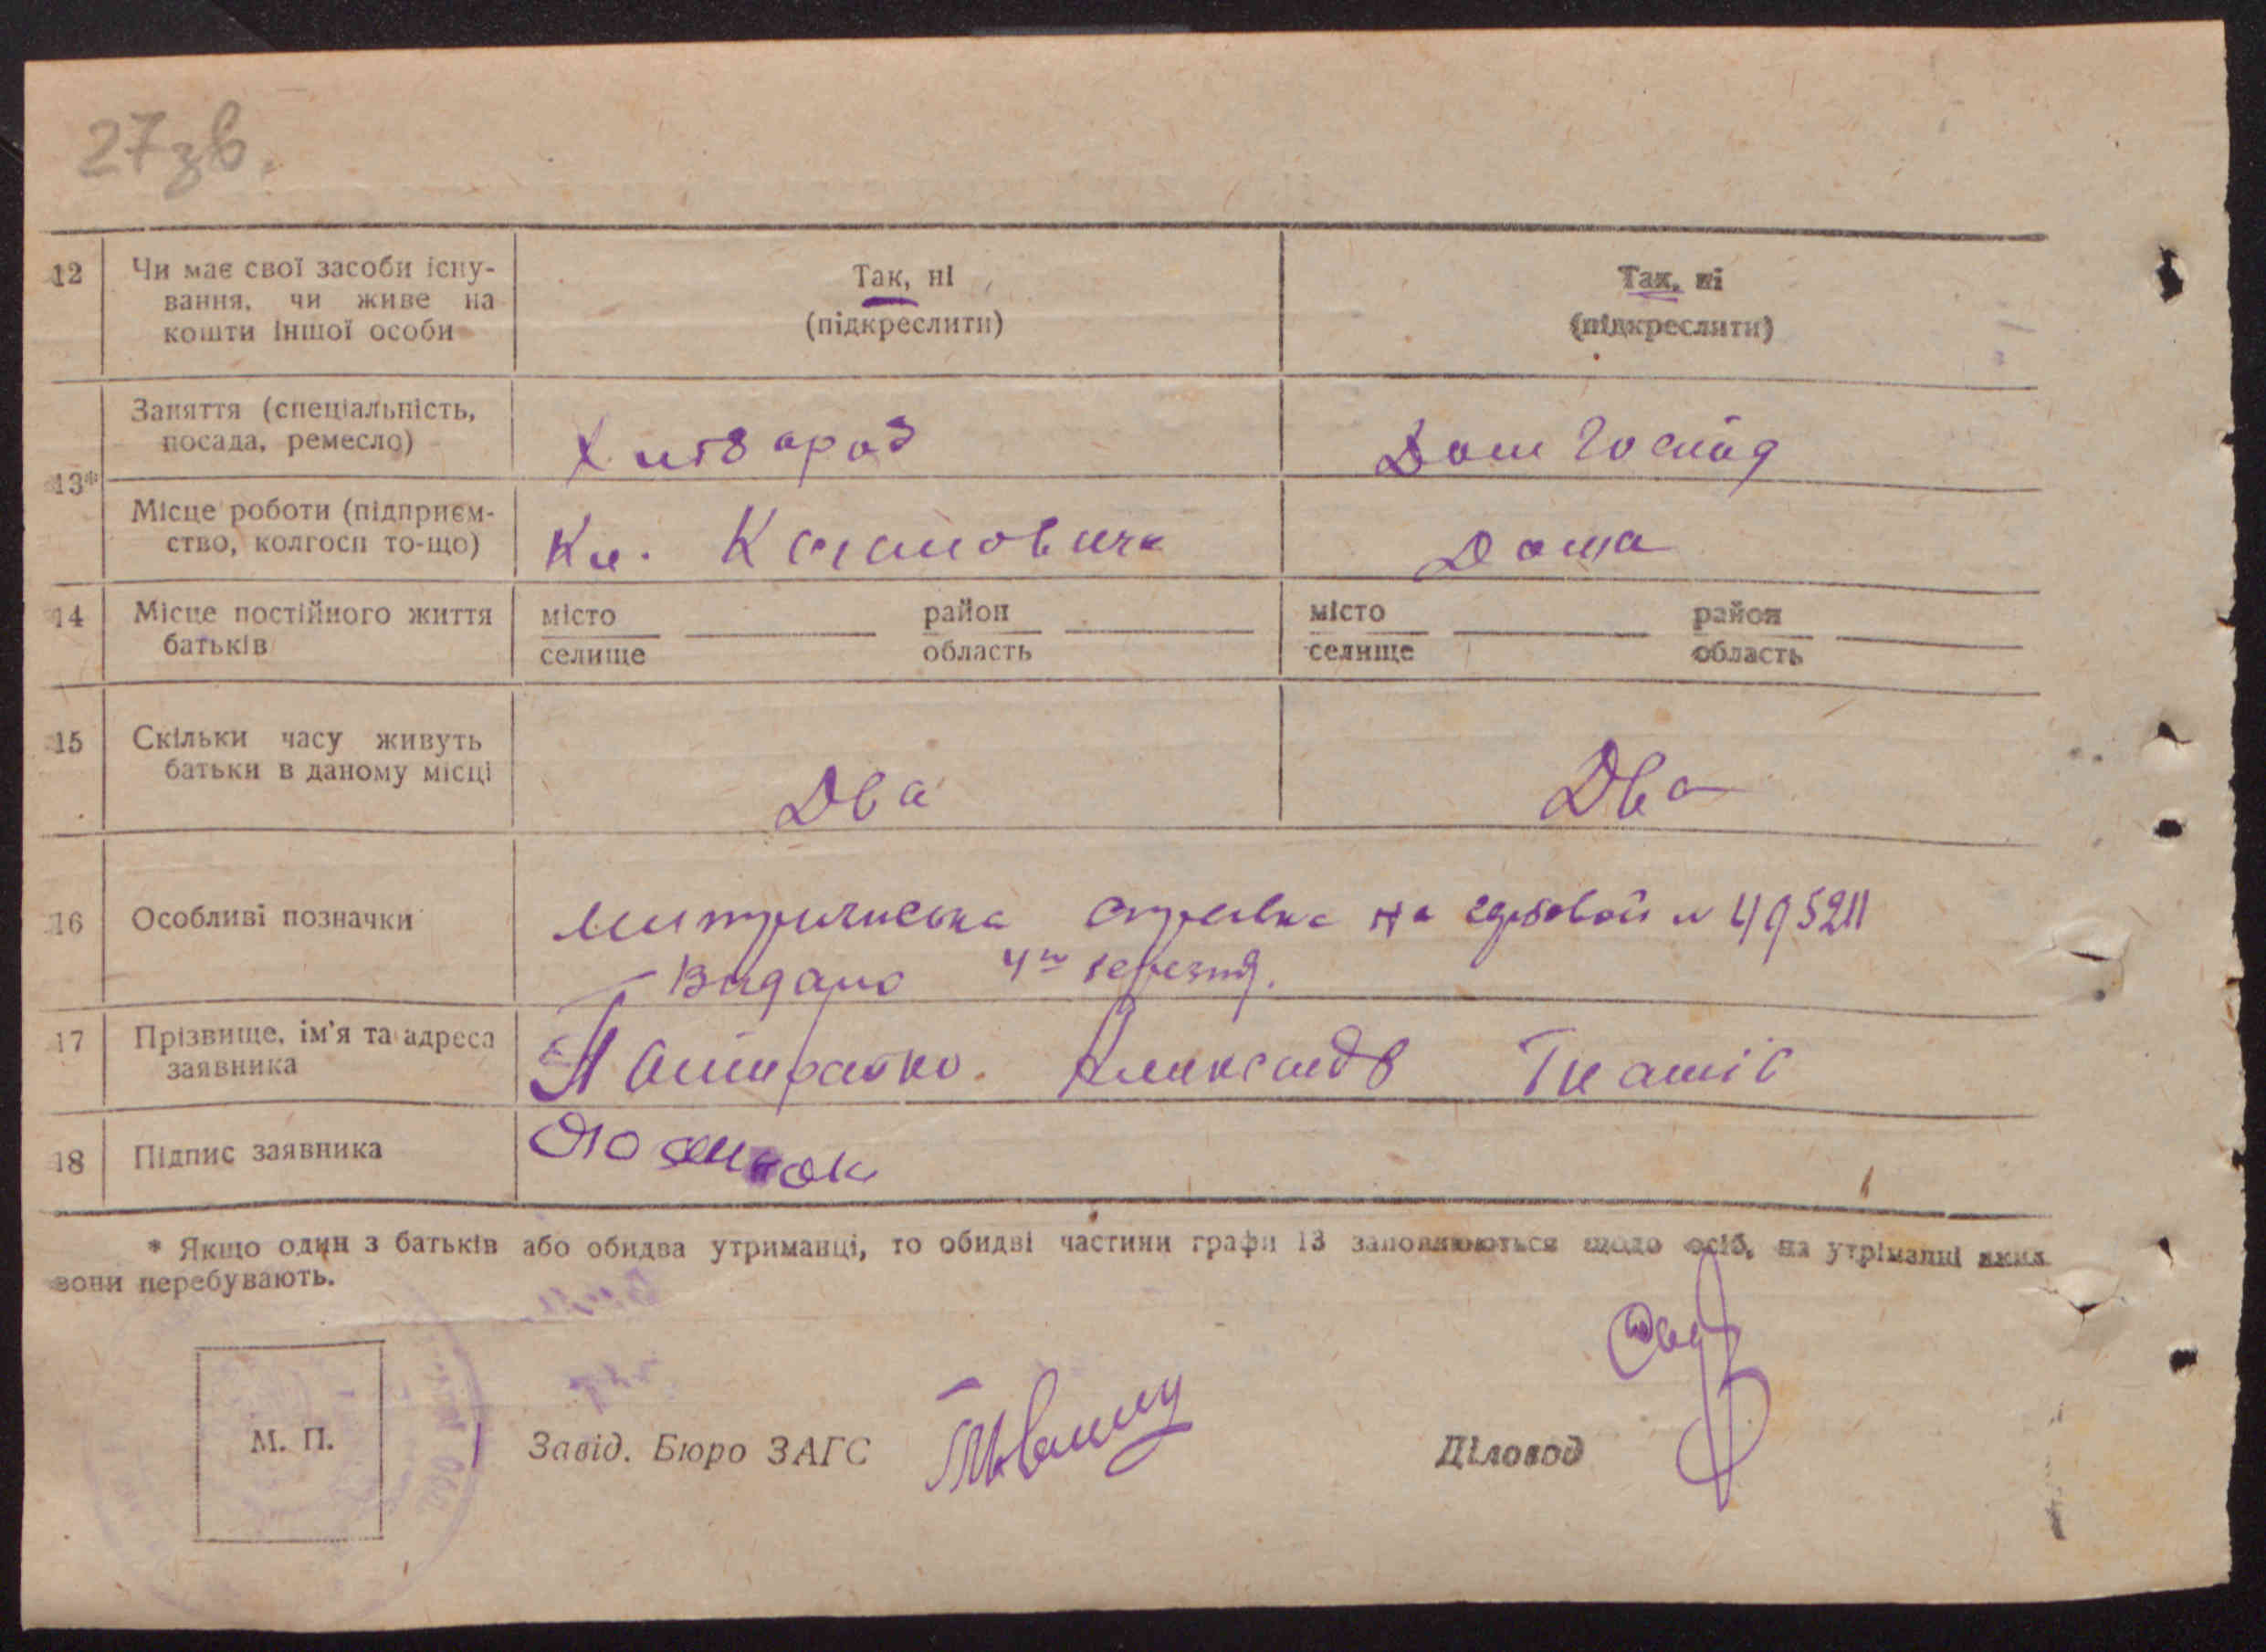 27зв.
12 Чи має свої засоби існу-
вання, чи живе на
кошти іншої особи
Так, ні
(підкреслити)
Так, ні
(підкреслити)
13*
Заняття (спеціальність,
посада, ремесло)
Хлібороб
Дом Господ
Місце роботи (підприєм-
ство, колгосп то-що)
Км. Кагановича
Дома
14 Місце постійного життя
батьків
місто район
селище область
місто район
селище область
15 Скільки часу живуть
батьки в даному місці
Два
Два
16 Особливі позначки
на гербовой №
Видано 4го березня.
17 Прізвище, ім'я та адреса
заявника
18 Підпис заявника
* Якщо один з батьків або обидва утриманці, то обидві частини графи 13 заповнюються щодо осіб, на утріманні яких
вони перебувають.
М. П.
Завід. Бюро ЗАГС
Діловод